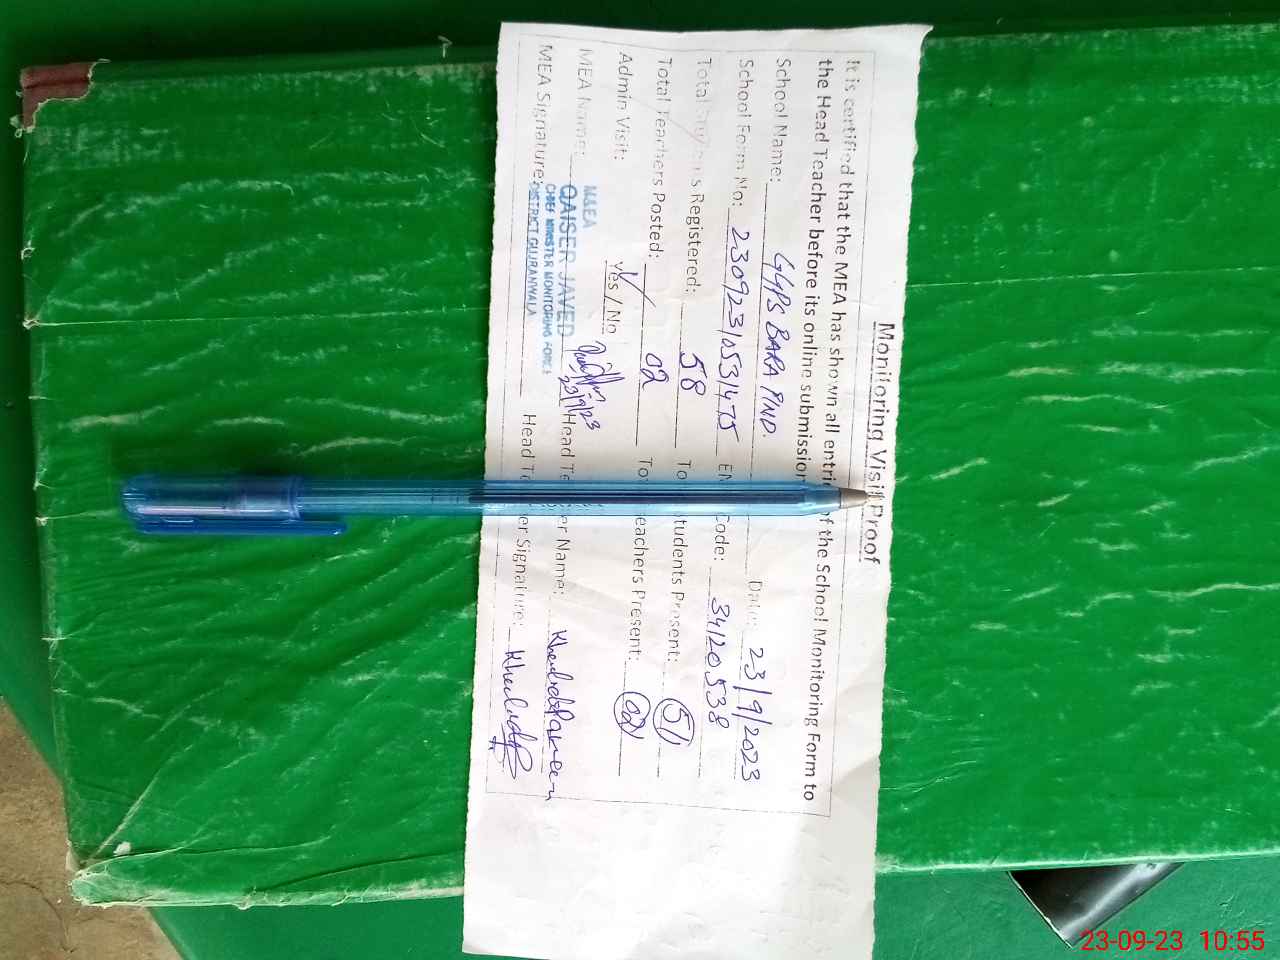 Monitoring Visit Proof
It is certified that the MEA has shown all entri of the School Monitoring Form to
the Head Teacher before its online submission
School Name: GGPS BARA PIND. Date: 23/9/2023
School Form No: 230923/053/475 EM Code: 34120538
Total Registered: 58 To Students Present: 51
Total Teachers Posted: 02 To eachers Present: 02
Admin Visit: yes / No
M&EA
MEA Name: QAISER JAVED 23/9/23 Head Te er Name: Khalida Parveen
CHIEF MINISTER MONITORING FORCE
MEA Signature: DISTRICT GUJRANWALA Head Te er Signature:
23-09-23 10:55